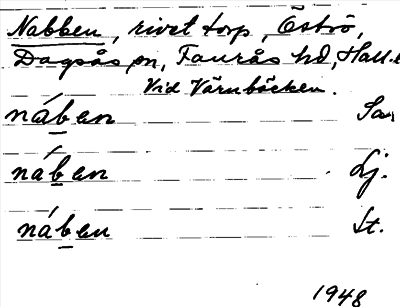 Nabben, rivet torp, Öströ,
Dagsås sn, Faurås hd, Hall.
Vid Värnbäcken.
náben Sa
náben Lj.
náben St.
1948